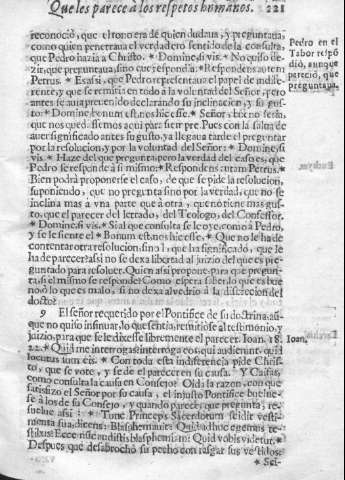 Que les parece a los respetos humanos.
221
reconoció, que el tono era de quien dudaua, y preguntaua,
como quien penetraua el verdadero sentido de la consulta,
que Pedro hazia a Christo. * Domine, si vis. * No quiso de-
zir, que preguntaua, sino que responde. * Respondens autem
Petrus. * Es assi, que Pedro representaua el papel de indife-
rente, y que se remitia en todo a la voluntad del Señor, pero
antes se auia preuenido declarando su inclinacion, y su gus-
to. * Domine bonum est nos hic esse. * Señor, bix no serà,
que nos quedassemos aqui para siempre. Pues con la salua de
auer significado antes su gusto, ya llegaua tarde el preguntar
por la resolucion, y por la voluntad del Señor: * Domine, si
vis. * Haze del que pregunta, pero la verdad del caso es, que
Pedro se responde a si mismo. * Respondens autem Petrus. *
Bien podrà proponerse el caso, de que se pide la resolucion,
suponiendo, que no pregunta sino por la verdad, que no se
inclina mas a vna parte que à otra, que no tiene mas gus-
to, que el parecer del letrado, del Teologo, del Confessor.
* Domine, si vis. * Si al que consulta se le oye, como à Pedro,
y se le siente el * Bonum est nos hic esse. * Que no le ha de
contentar otra resolucion, sino la que ha significado, que le
ha de parecer assi, no se dexa libertad al juizio del que es pre-
guntado para resoluer. Quien assi propone, para que pregun-
ta, si el mismo se responde? Como espera saber, lo que es bue-
no, ò lo que es malo, si no dexa aluedrio à la discrecion del
docto?
9 El señor requerido por el Pontifice de su doctrina, aũ-
que no quiso insinuar, lo que sentia, remitiose al testimonio, y
juizio, para que se le dixesse libremente el parecer. Ioan. 18.
22. * Quid me interrogas? interroga eos, qui audierunt, quid
locutus sum eis. * Con toda esta indiferencia pide Chris-
to, que se vote, y se dè el parecer en su causa. Y Caifas,
como consulta la causa en Consejo? Oid: la razon, con que
satisfizo el Señor por su causa, el injusto Pontifice buelue-
se à los de su Consejo, y quando parece que pregunta, re-
suelue assi: * Tunc Princeps Sacerdotum scidit vesti-
menta sua, dicens: Blasphemauit: Quid adhuc egemus te-
stibus? Ecce nunc audistis blasphemiam: Quid vobis videtur. *
Despues que desabrochò su pecho con rasgar sus vestidos:
* Sci-
Pedro en el
Tabor respõ
diò, aunque
pareciò, que
preguntaua.
Ioan.